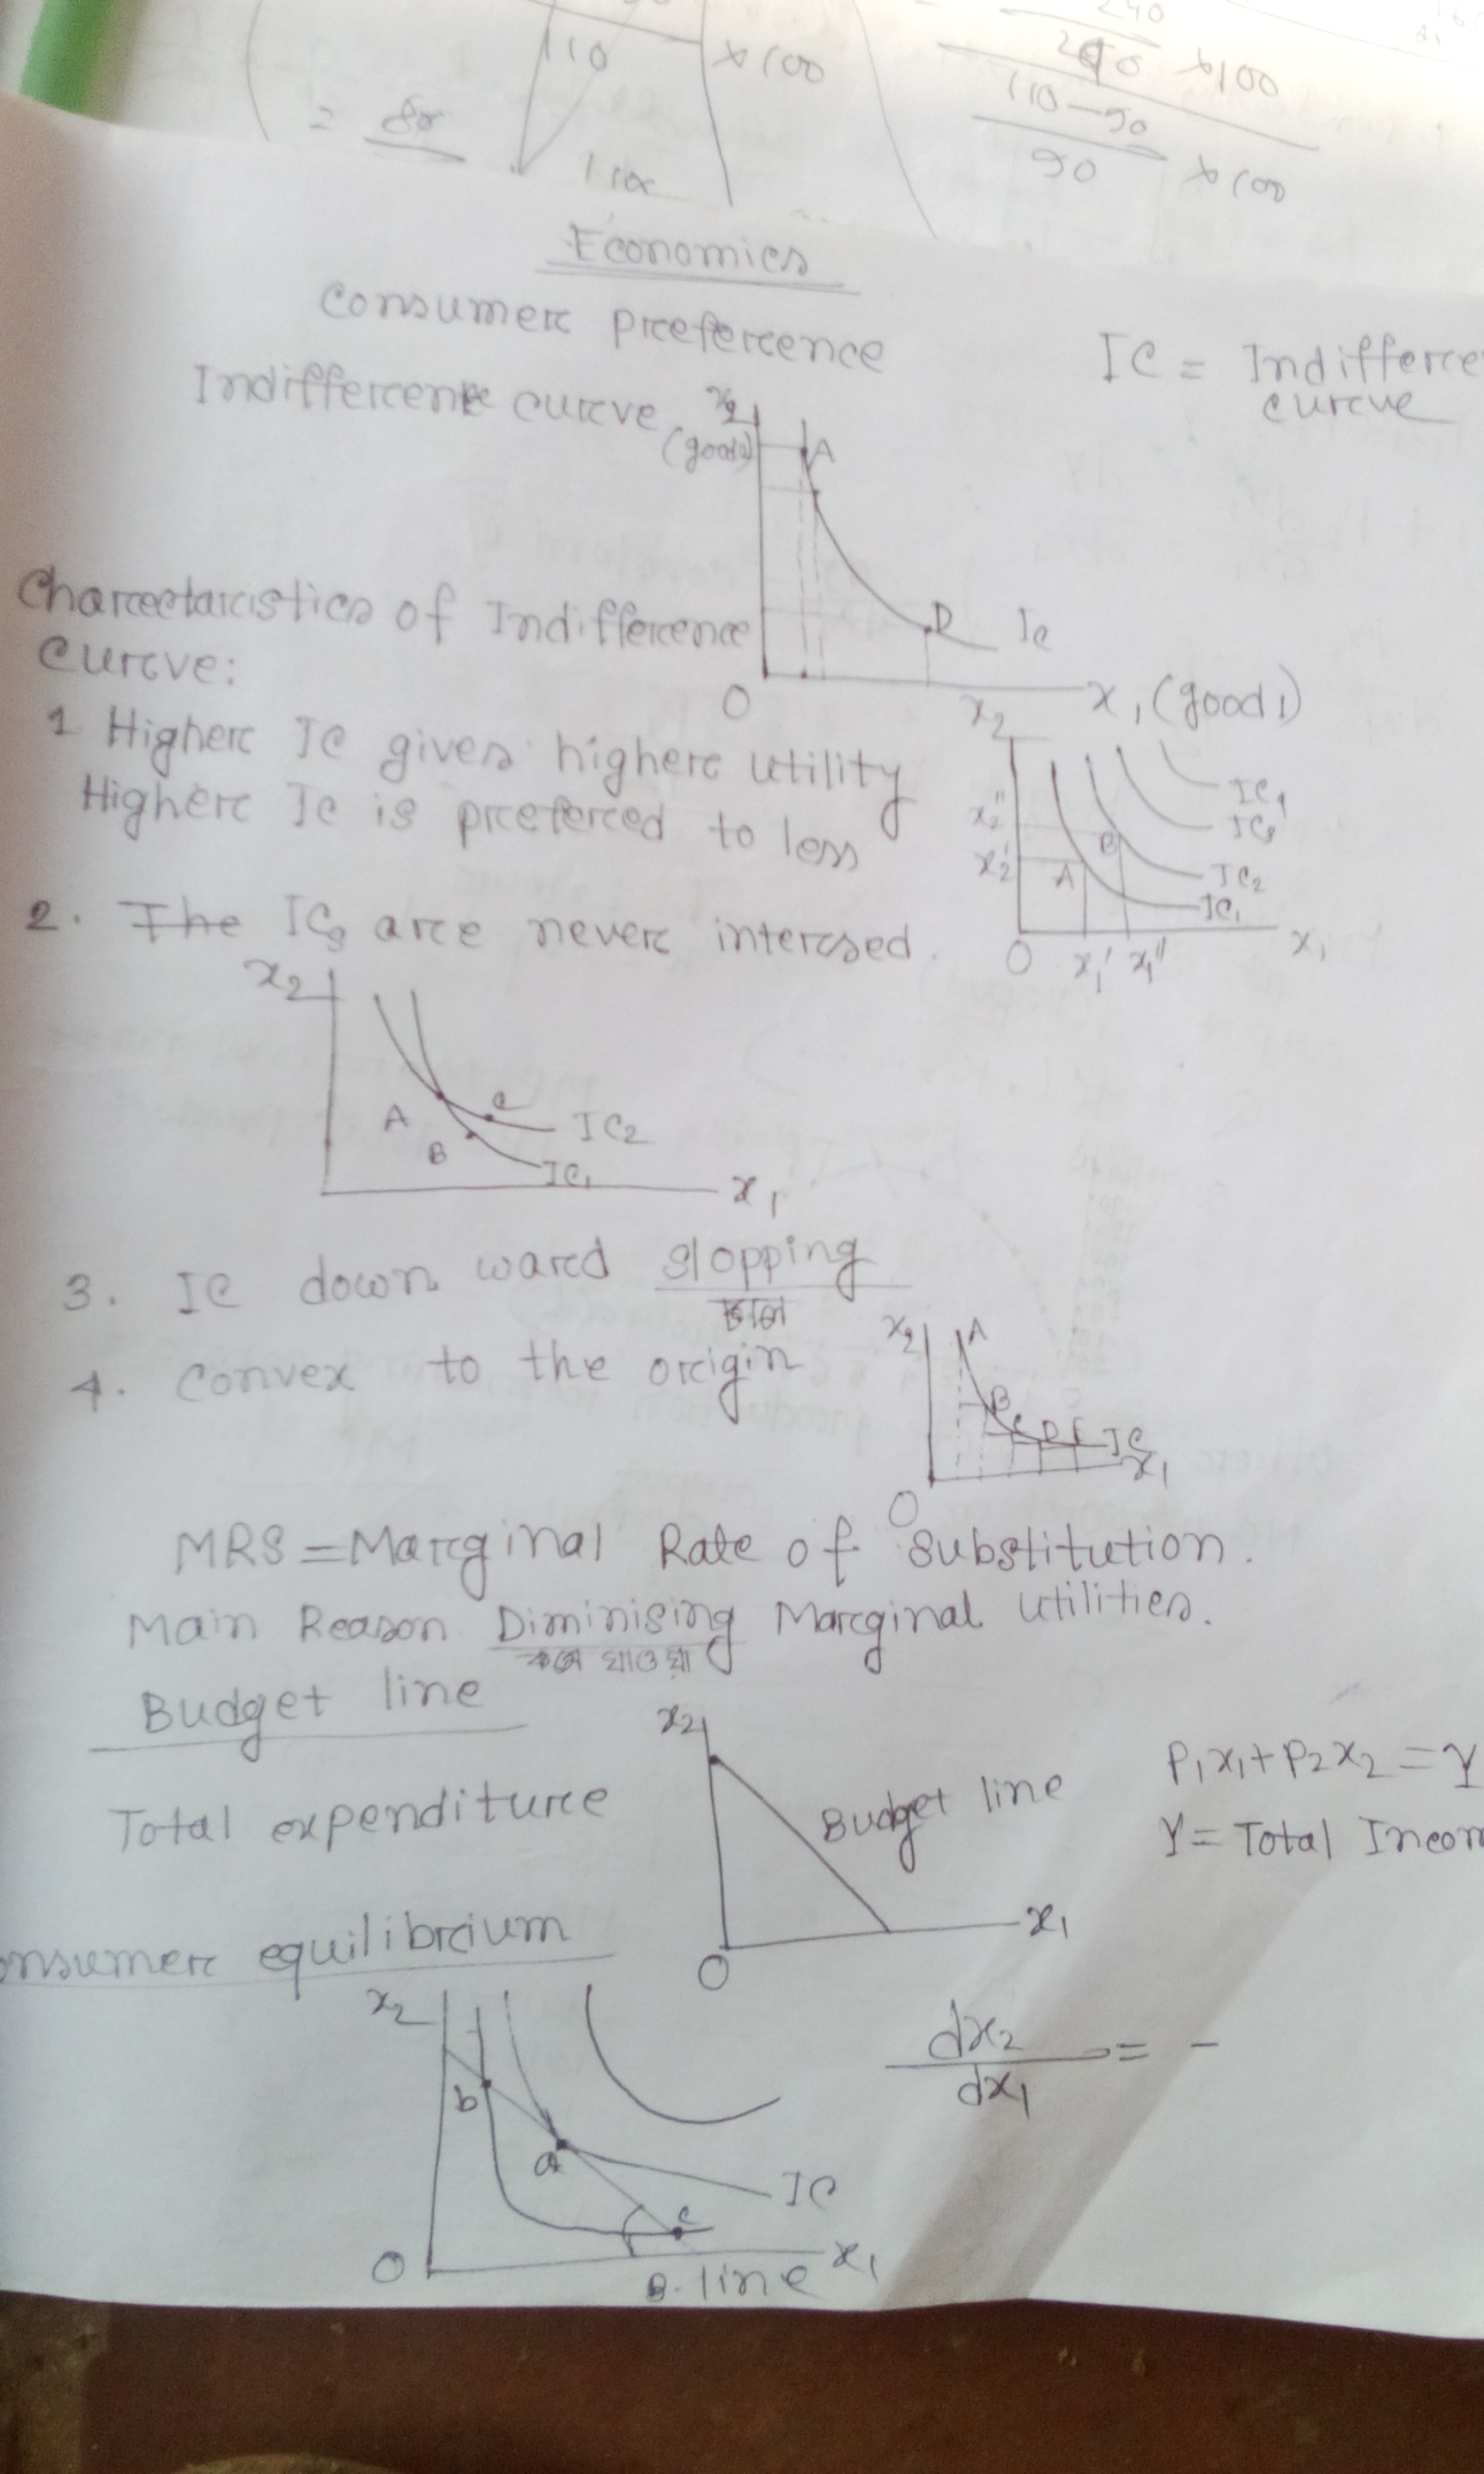 110 × 100
240
240 × 100
= 80
110
110 - 90
90 × 100
Economics
Consumer preference
IC = Indiffere
curve
Indifference curve
x2
(good2)
A
D
Ic
O
x1 (good 1)
Charectaristics of Indifference
curve:
1 Higher IC gives higher utility
Higher Ic is prefered to less
x2
IC4
IC3
x2''
B
x2'
A
IC2
IC1
O x1' x1'' x1
2. The ICs are never intersed.
x2
A
c
IC2
B
IC1
x1
3. IC down ward slopping
ঢাল
4. Convex to the origin
x2
A
B
C D E IC
x1
O
MRS = Marginal Rate of Substitution.
Main Reason Diminising Marginal utilities.
কমে যাওয়া
Budget line
x2
P1x1 + P2x2 = Y
Budget line
Total expenditure
Y = Total Incom
x1
O
onsumer equilibrium
x2
dx2
dx1
= -
b
a
IC
c
O
x1
B. line